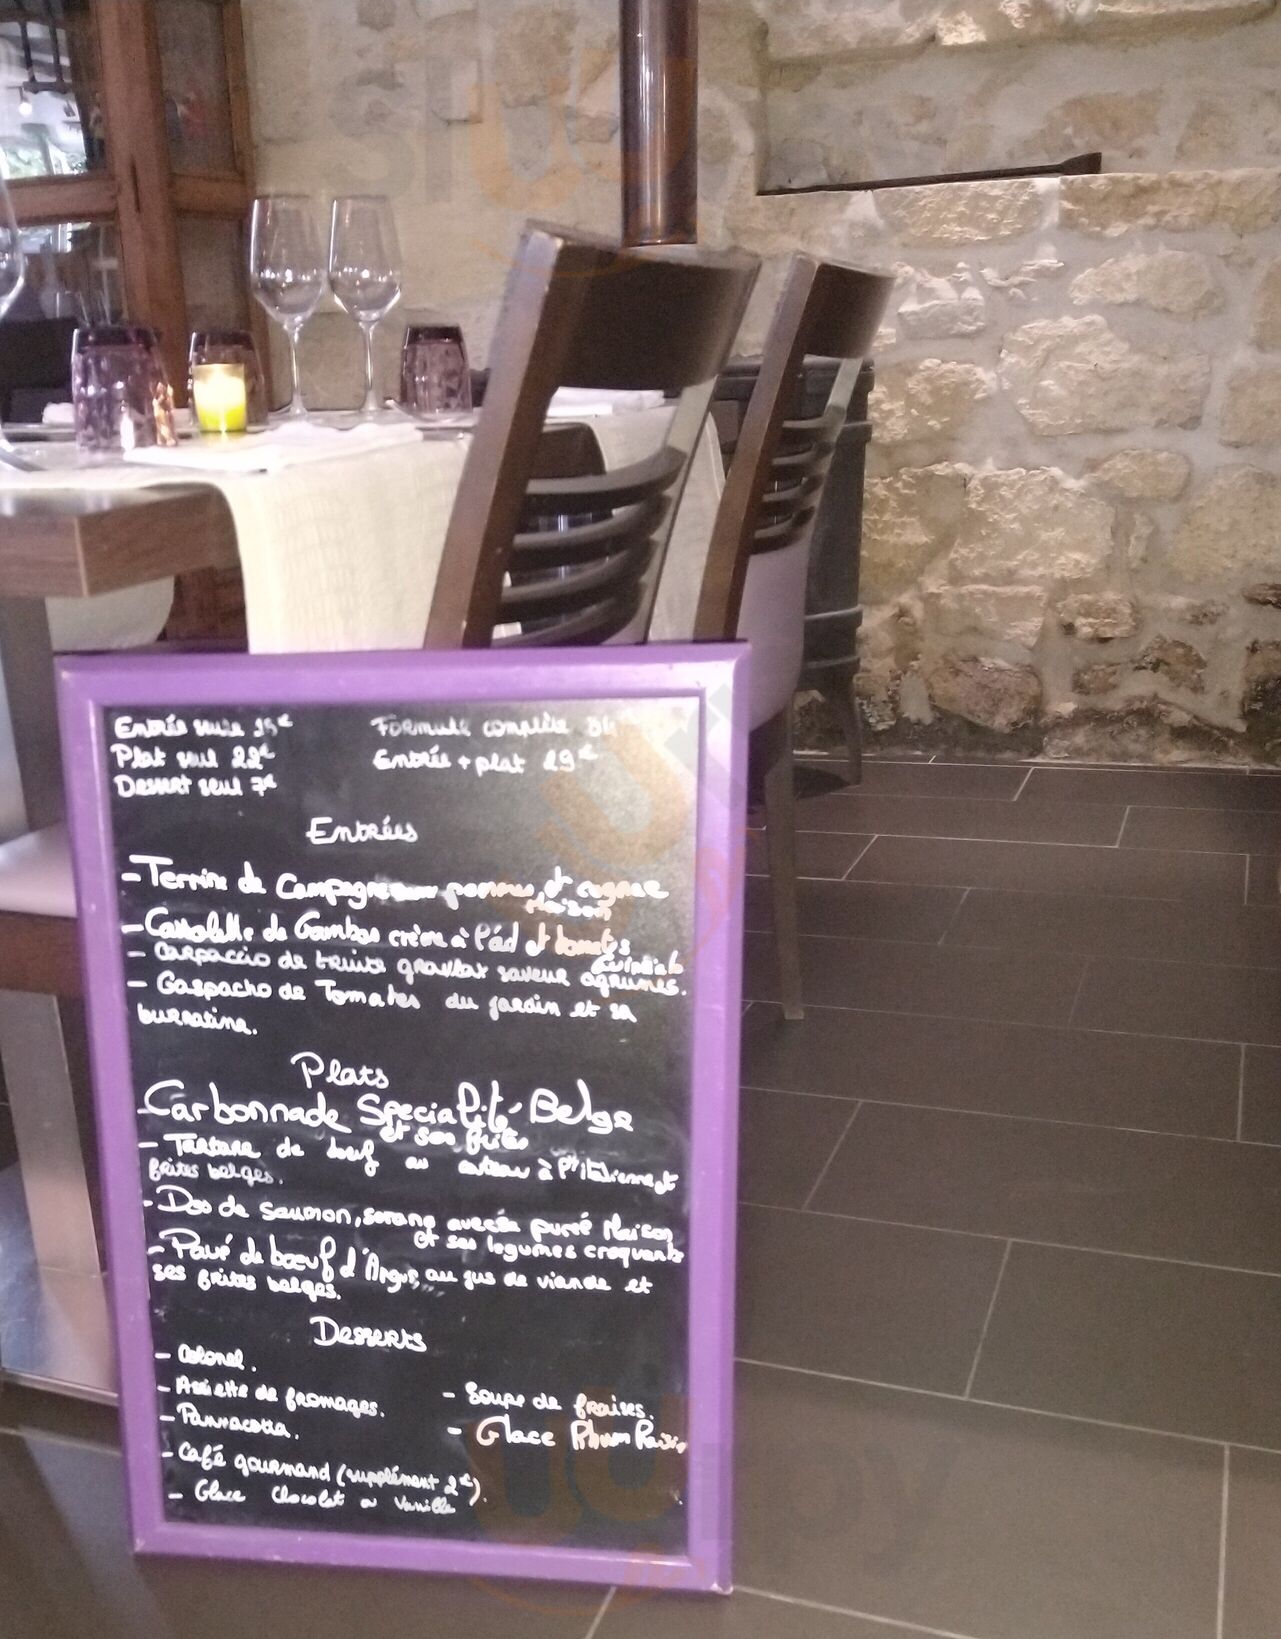 Entrée seule 15€ Formule complète 34
Plat seul 22€ Entrée + plat 29€
Dessert seul 7€
Entrées
- Terrine de Campagne pommes et cognac
Maison
- Cassolette de Gambas crème à l'ail et tomates
- Carpaccio de truite gravlax saveur agrumes.
- Gaspacho de Tomates du jardin et sa
burratina.
Plats
- Carbonnade Spécialité Belge
et ses frites
- Tartare de bœuf au couteau à l'italienne et
frites belges.
- Dos de saumon, avec sa purée Maison
et ses légumes croquants
- Pavé de bœuf d'Angus, au jus de viande et
ses frites belges.
Desserts
- Colonel.
- Assiette de fromages. - Soupe de fraises.
- Pannacotta. - Glace Rhum Raisin
- Café gourmand (supplément 2€).
- Glace Chocolat ou Vanille